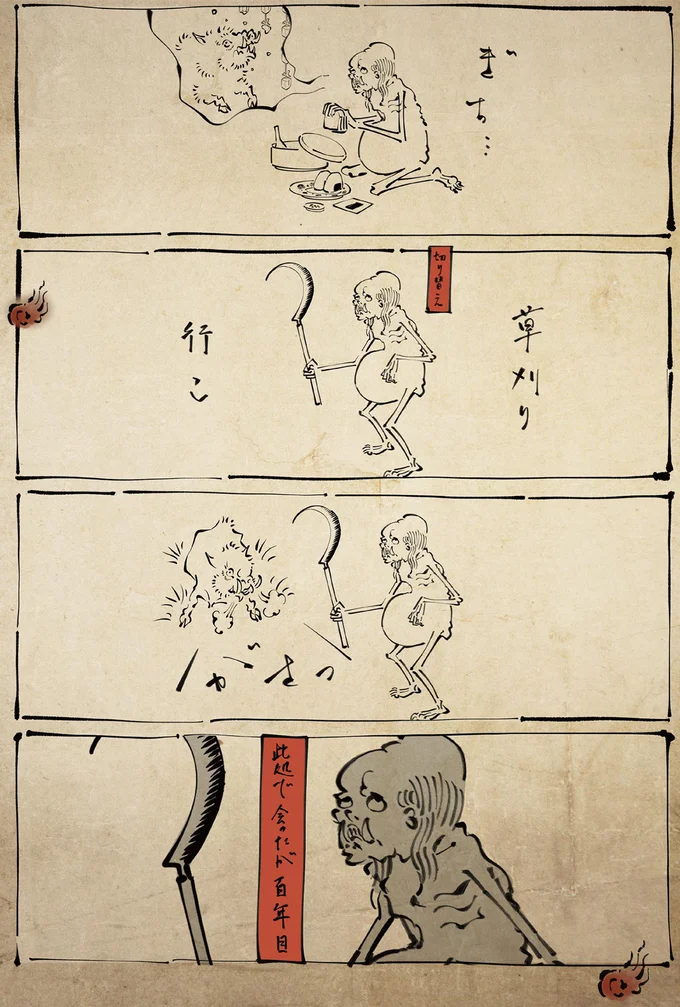 ぎち…
切り替え
草刈り
行こ
がさっ
此処で会ったが百年目